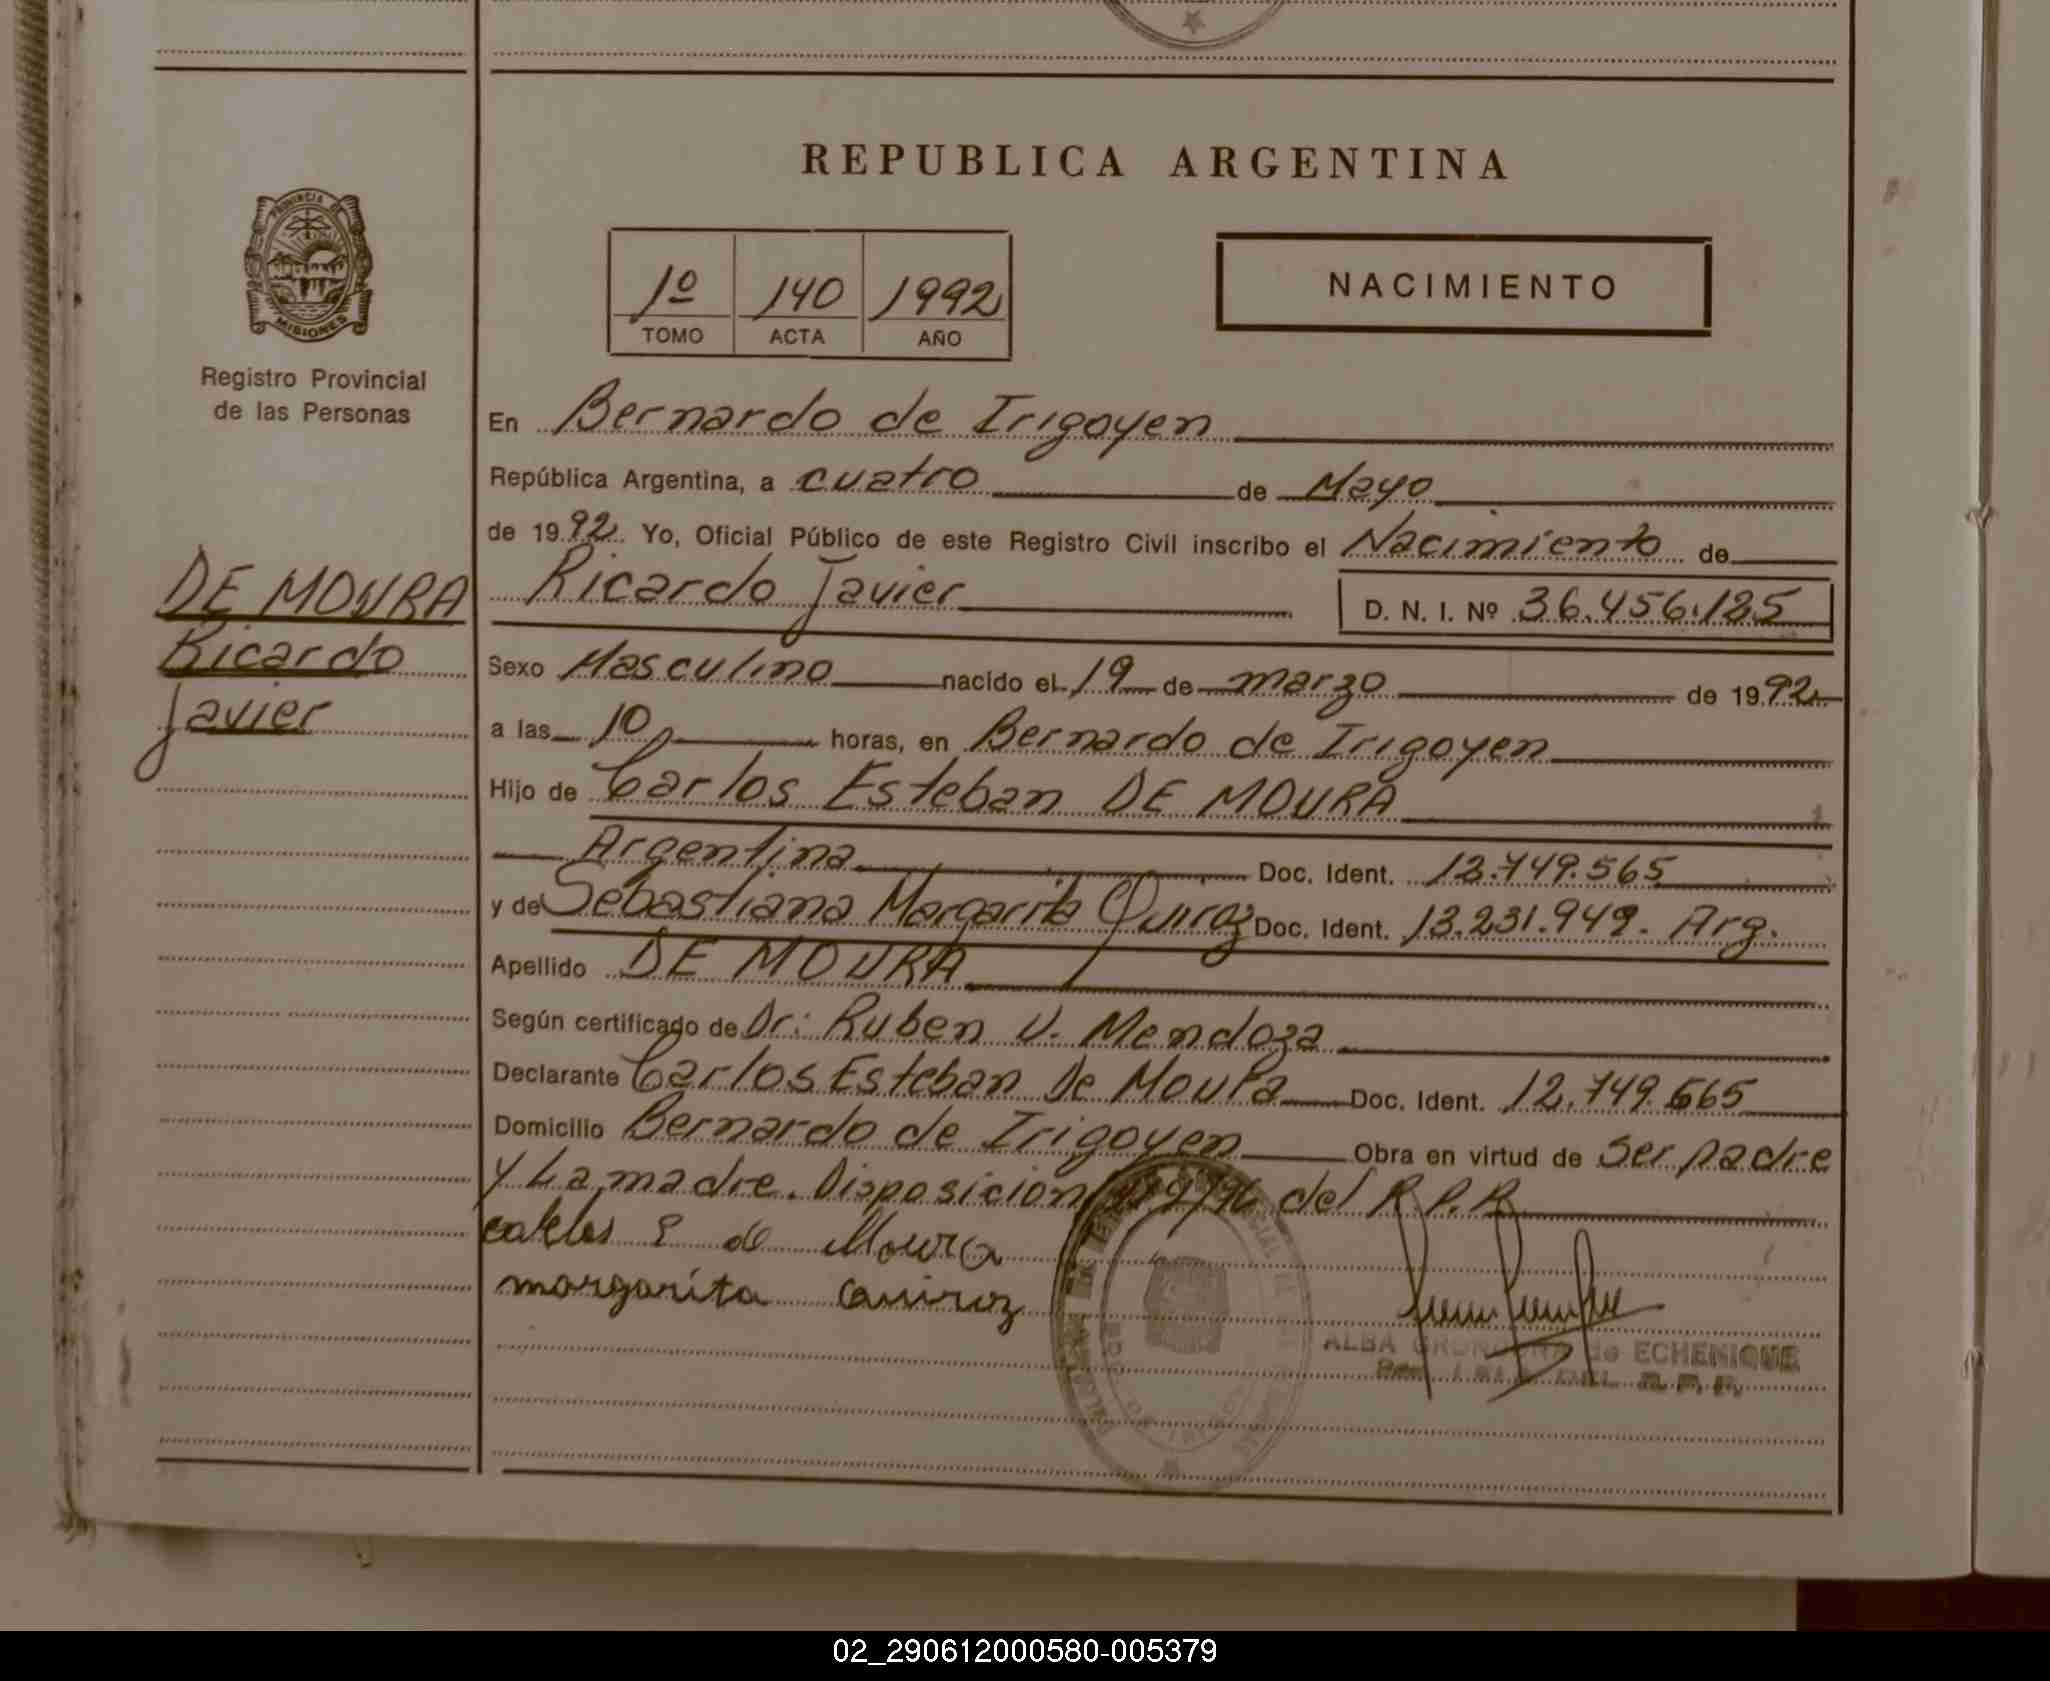 REPUBLICA ARGENTINA
PROVINCIA DE
MISIONES
Registro Provincial
de las Personas
1º 140 1992
TOMO ACTA AÑO
NACIMIENTO
DE MOURA
Ricardo
Javier
En Bernardo de Irigoyen
República Argentina, a cuatro de Mayo
de 1992 Yo, Oficial Público de este Registro Civil inscribo el Nacimiento de
Ricardo Javier D. N. I. Nº 36.456.125
Sexo Masculino nacido el 19 de marzo de 1992
a las 10 horas, en Bernardo de Irigoyen
Hijo de Carlos Esteban DE MOURA
Argentina Doc. Ident. 12.749.565
y de Sebastiana Margarita Quiroz Doc. Ident. 13.231.949. Arg.
Apellido DE MOURA
Según certificado de Dr: Ruben V. Mendoza
Declarante Carlos Esteban De Moura Doc. Ident. 12.749.565
Domicilio Bernardo de Irigoyen Obra en virtud de ser padre
y La madre. Disposicion del R.P.R.
E de Moura
margarita Quiroz
ALBA de ECHENIQUE
DEL R. P. P.
02_290612000580-005379